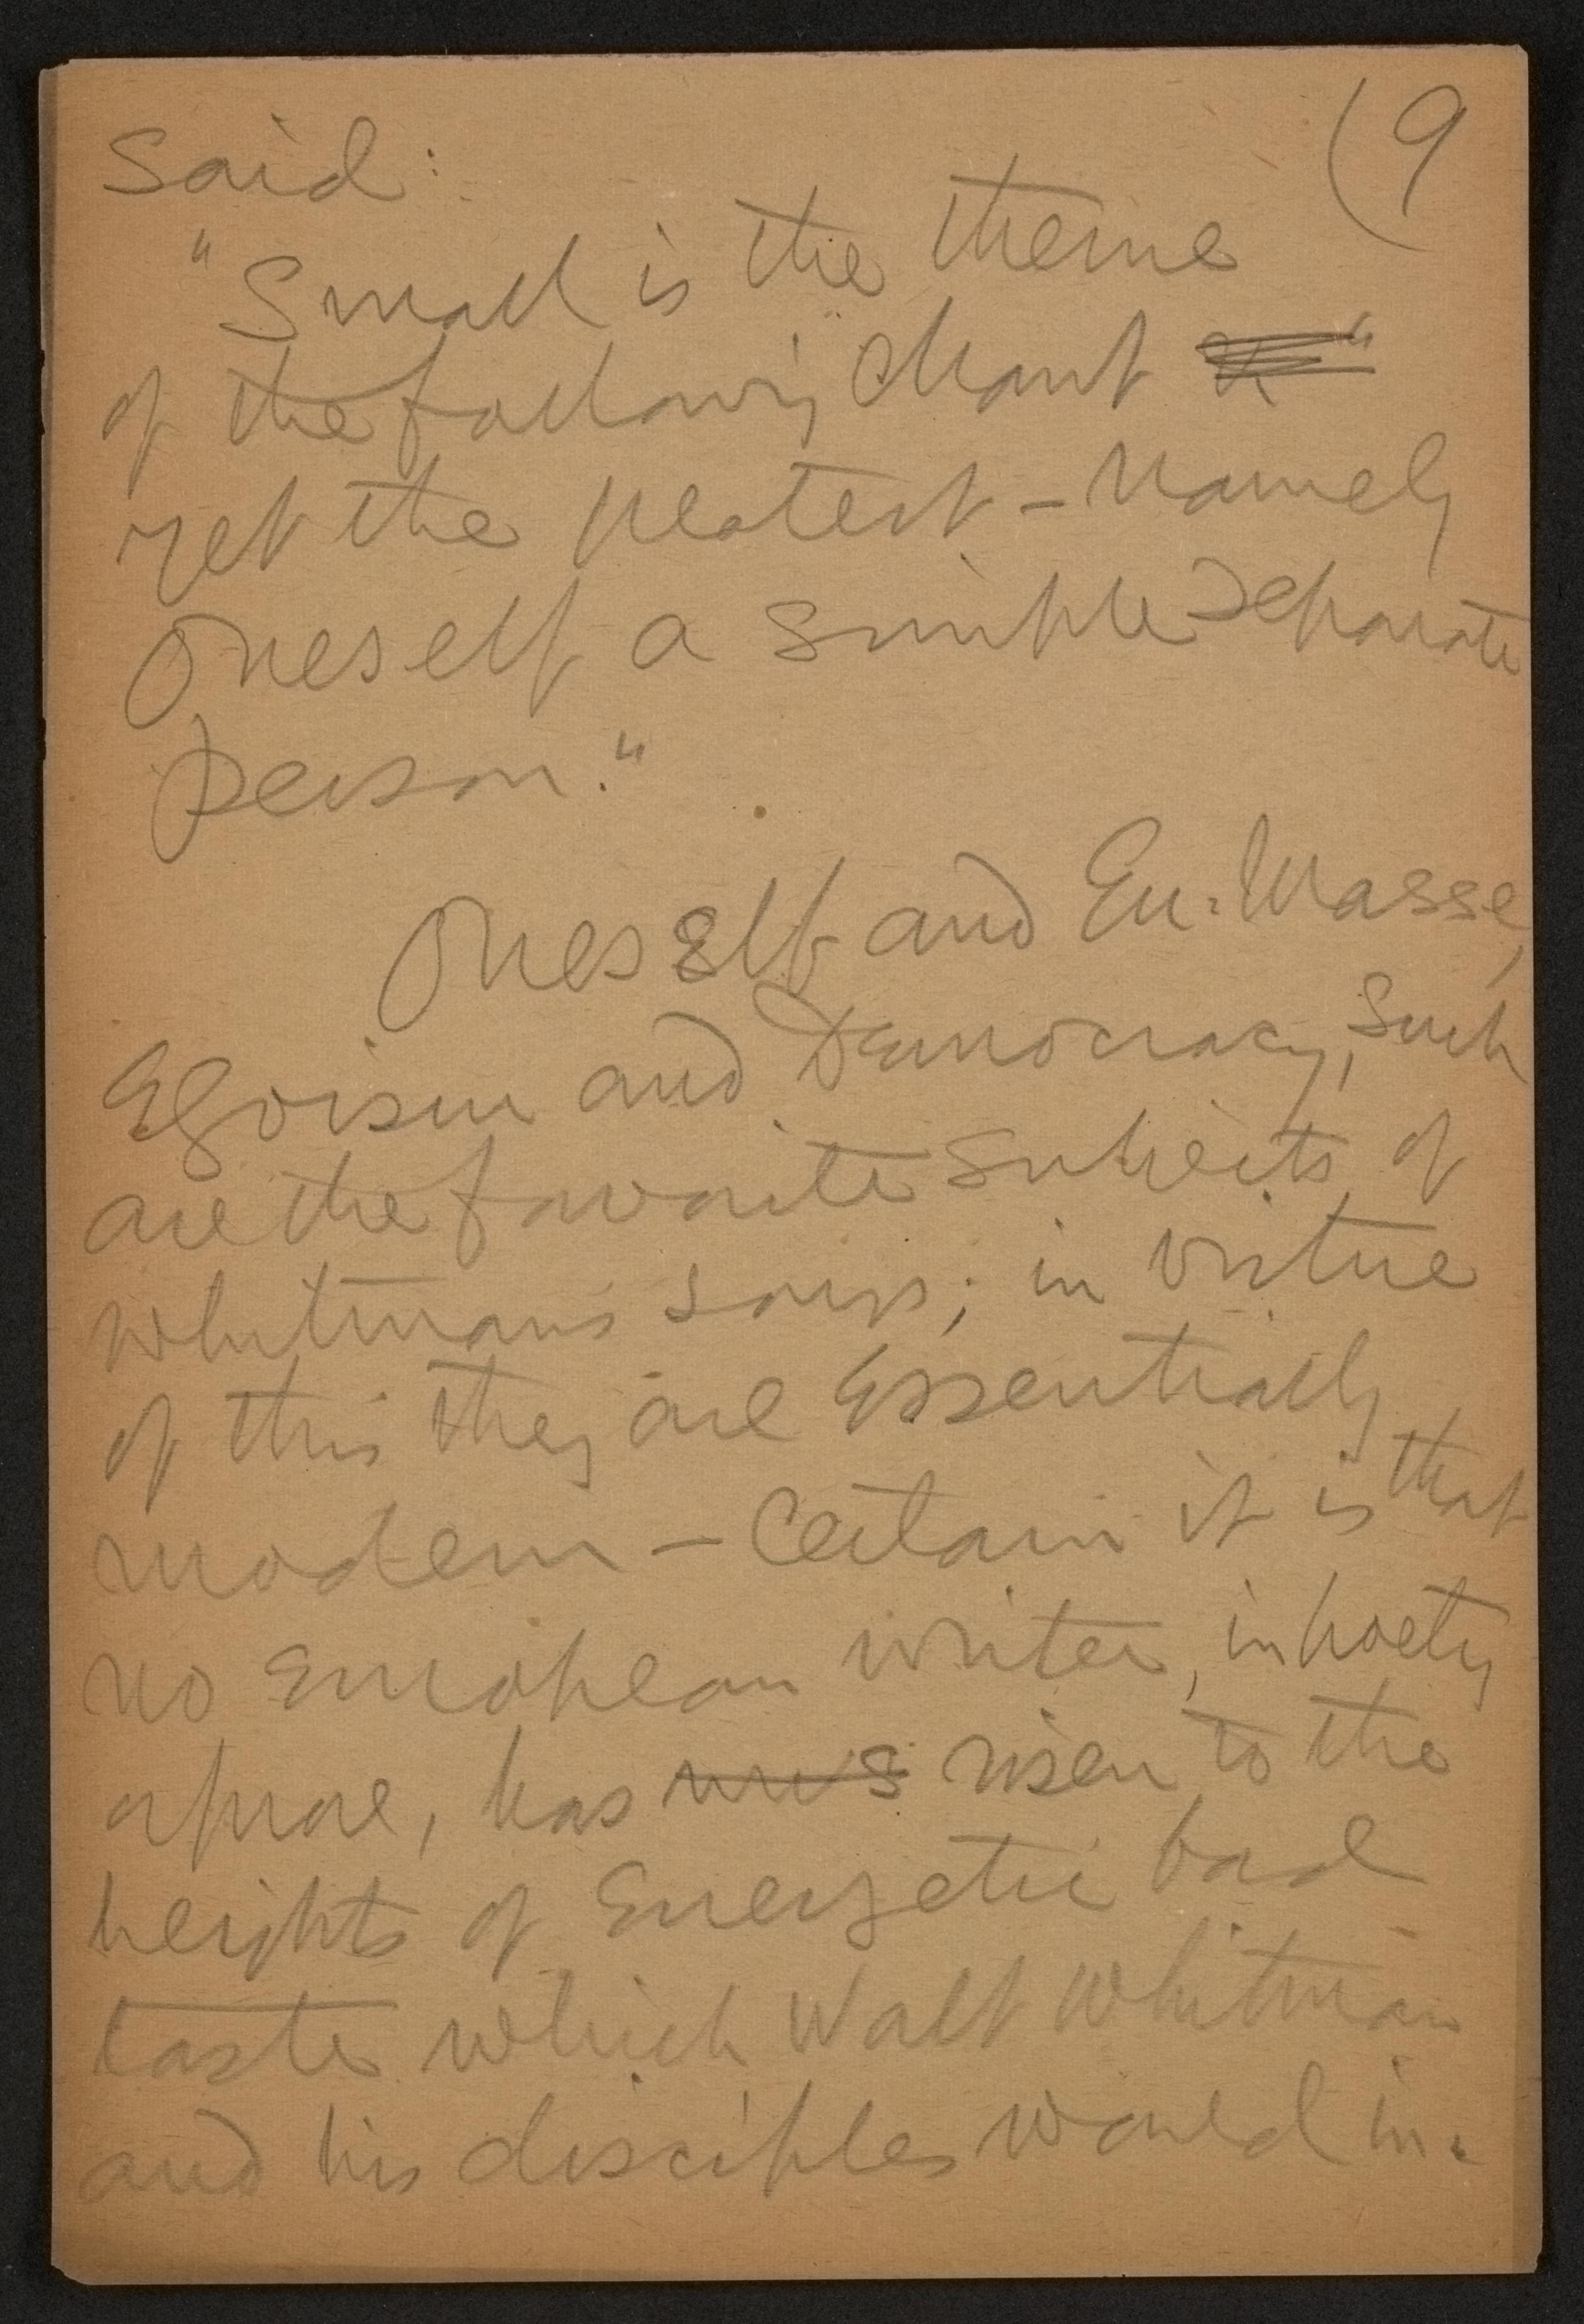 (9
Said:
"Small is the theme
of the following Chant
yet the greatest - Namely
Oneself a simple Separate
person."
Oneself and En-Masse,
Egoism and Democracy, Such
are the favorite subjects of
Whitmans songs; in virtue
of this they are Essentially
modern - Certain it is that
no European writer, in poetry
or prose, has risen to the
heights of Energetic bad
taste which Walt Whitman
and his disciples would in-